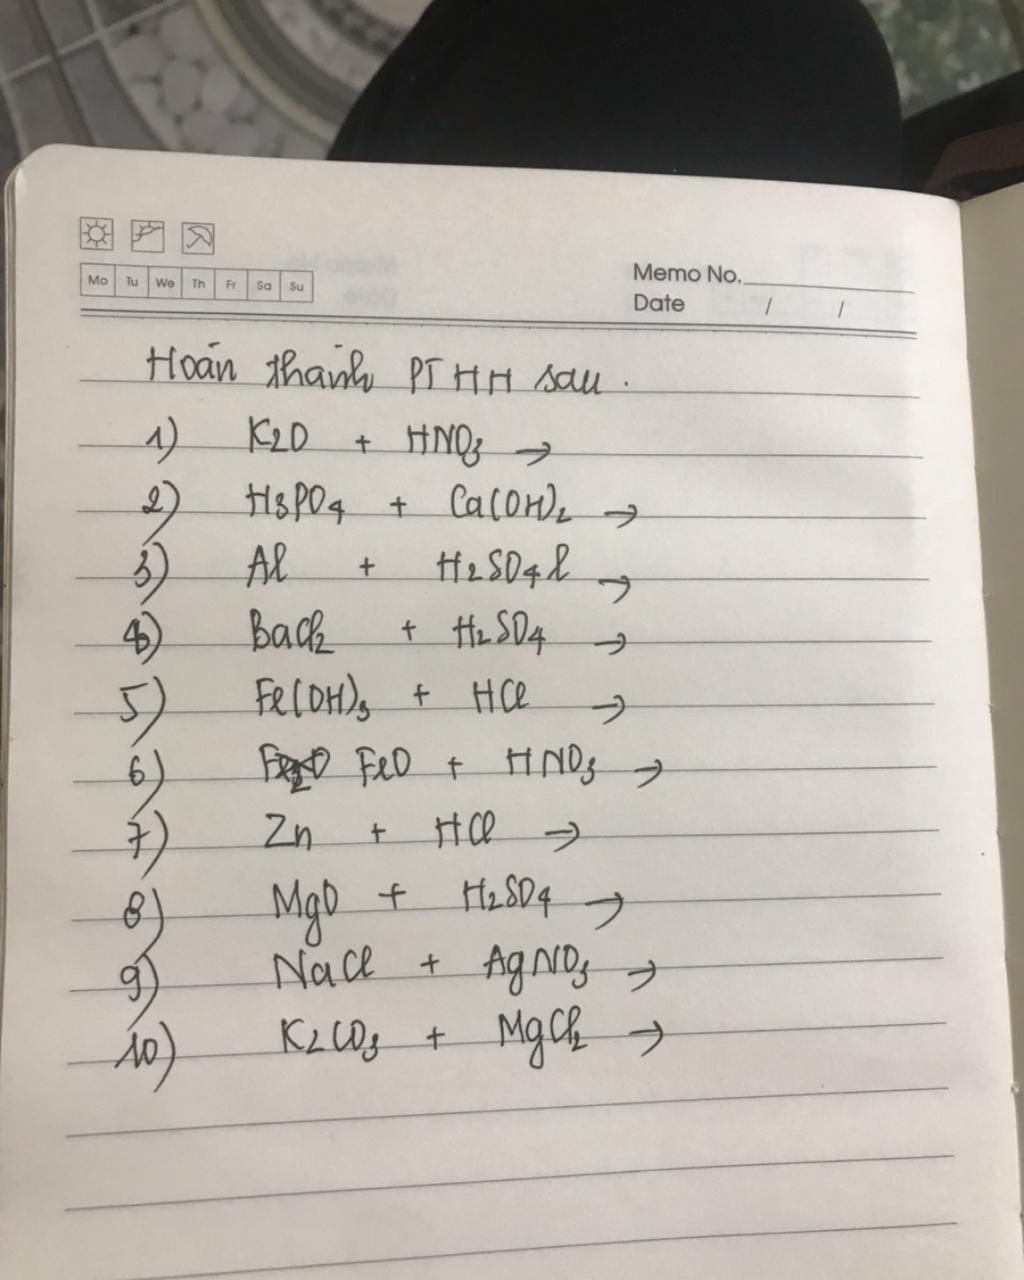 Mo Tu We Th Fr Sa Su
Memo No.
Date / /
Hoàn thành PTHH sau.
1) K2O + HNO3 →
2) H3PO4 + Ca(OH)2 →
3) Al + H2SO4 l →
4) BaCl2 + H2SO4 →
5) Fe(OH)3 + HCl →
6) FeO + HNO3 →
7) Zn + HCl →
8) MgO + H2SO4 →
9) NaCl + AgNO3 →
10) K2CO3 + MgCl2 →